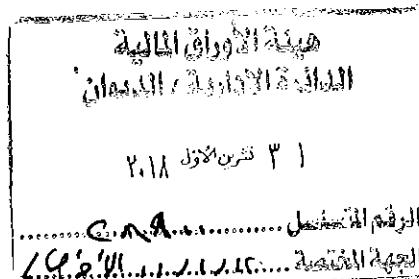 هيئة الأوراق المالية
الدائرة الإدارية / الديوان
٣١ تشرين الأول ٢٠١٨
الرقم المتسلسل
الجهة المختصة